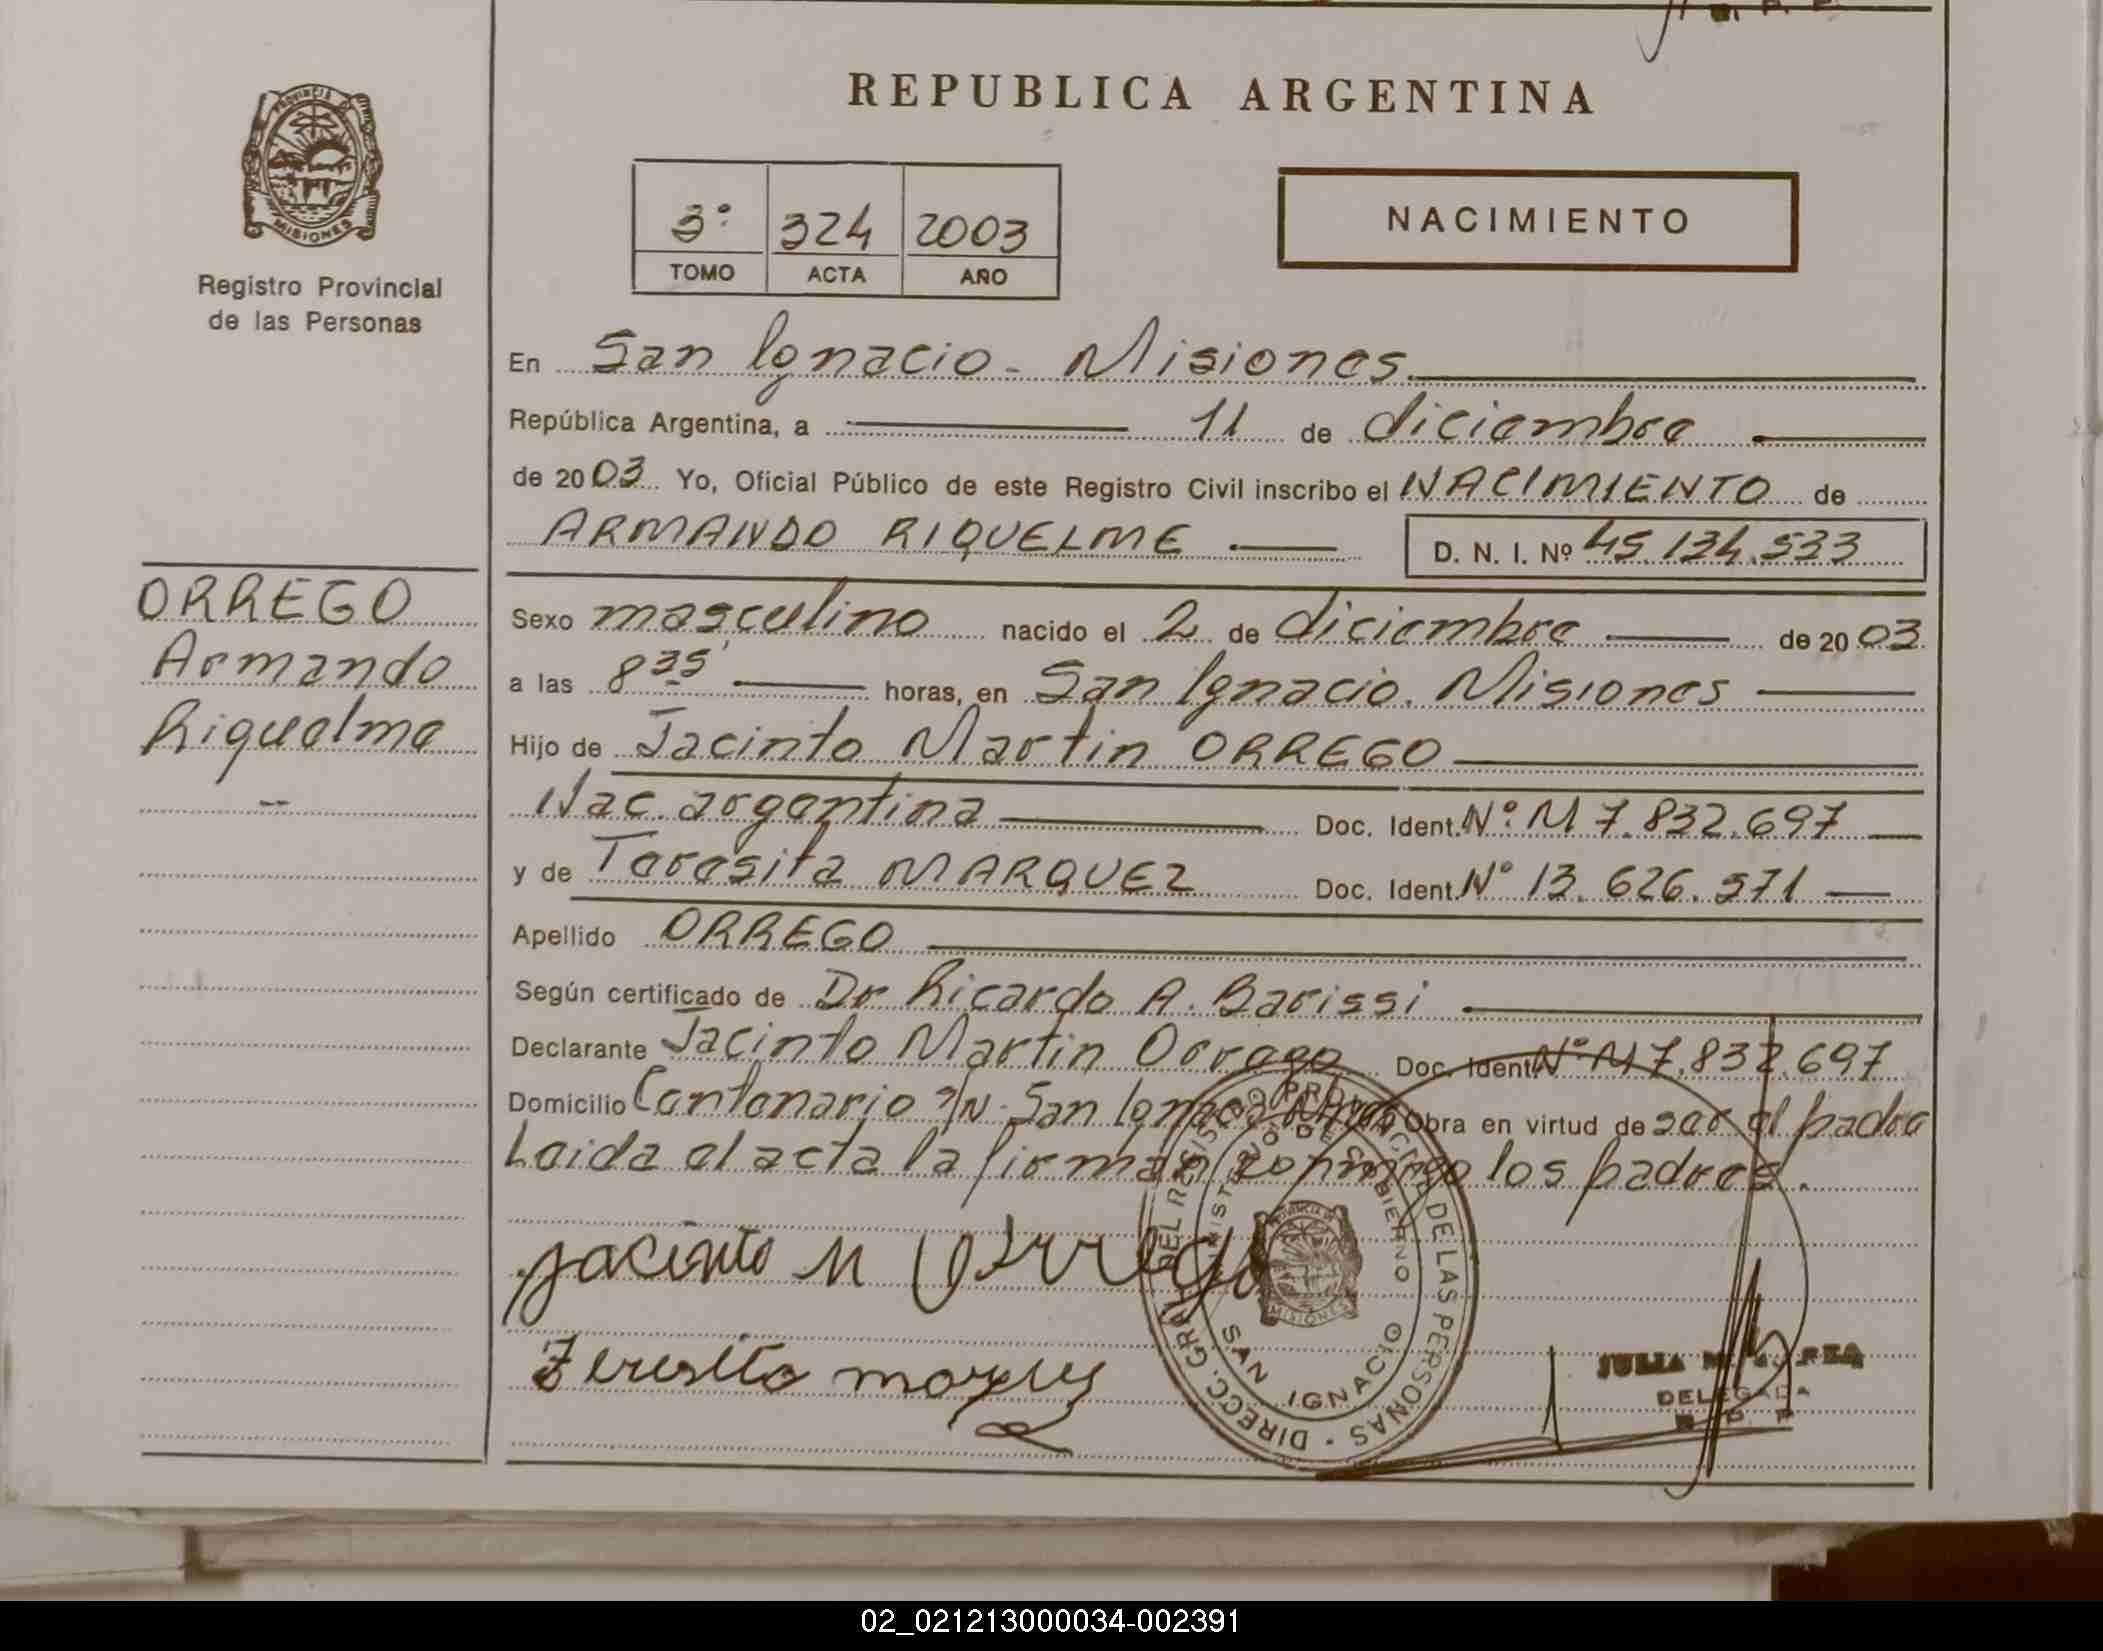 REPUBLICA ARGENTINA
PROVINCIA DE MISIONES
Registro Provincial
de las Personas
3º 324 2003
TOMO ACTA AÑO
NACIMIENTO
En San Ignacio - Misiones
República Argentina, a 11 de diciembre
de 2003 Yo, Oficial Público de este Registro Civil inscribo el NACIMIENTO de
ARMANDO RIQUELME D. N. I. Nº 45.134.533
ORREGO
Armando
Riquelme
--
Sexo masculino nacido el 2 de diciembre de 2003
a las 8 35' horas, en San Ignacio. Misiones
Hijo de Jacinto Martin ORREGO
Nac. argentina Doc. Ident. Nº M 7.832.697
y de Teresita MARQUEZ Doc. Ident. Nº 13.626.571
Apellido ORREGO
Según certificado de Dr Ricardo A. Barissi
Declarante Jacinto Martin Orrego Doc. Ident. Nº M 7.832.697
Domicilio Centenario s/N. San Ignacio Obra en virtud de ser el padre
Leida el acta la firman conmigo los padres.
Jacinto M Orrego
Teresita
DIRECC. GRAL. DEL REGISTRO PROVINCIAL DE LAS PERSONAS
MINISTERIO DE GOBIERNO
MISIONES
SAN IGNACIO
JULIA
DELEGADA
02_021213000034-002391